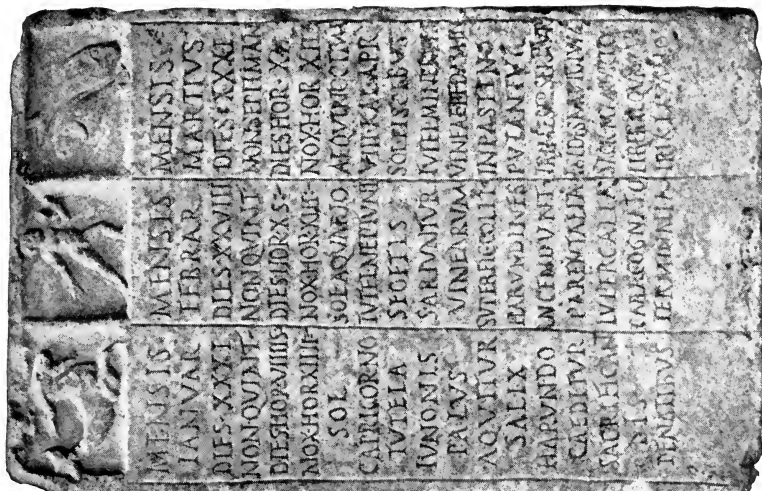 MENSIS
IANVAR
DIES·XXXI
NON·QVINT
DIES·HOR·VIIII
NOX·HOR·XIIII
SOL
CAPRICORNO
TVTELA
IVNONIS
PALVS
AQVITVR
SALIX
HARVNDO
CAEDITVR
SACRIFICAN
DIS
PENATIBVS
MENSIS
FEBRAR
DIES·XXVIII
NON·QVINT
DIES·HOR·X·S
NOX·HOR·XIII
SOL·AQVARIO
TVTEL·NEPTVNI
SEGETES
SARIVNTVR
VINEARVM
SVPERFIC·COLIT
HARVNDINES
INCENDVNT
PARENTALIA
LVPERCALIA
CARA·COGNATIO
TERMINALIA
MENSIS
MARTIVS
DIES·XXXI
NON·SEPTIMAN
DIES·HOR·XII
NOX·HOR·XII
AEQVINOCTIVM
VIII·KAL·APR
SOL·PISCIBVS
TVTEL·MINERVAE
VINEAE·PEDAMIN
IN·PASTINO
PVTANTVR
TRIMESTR·SERITVR
ISIDIS·NAVIGIVM
SACR·MAMVRIO
LIBERAL·QVINQVA